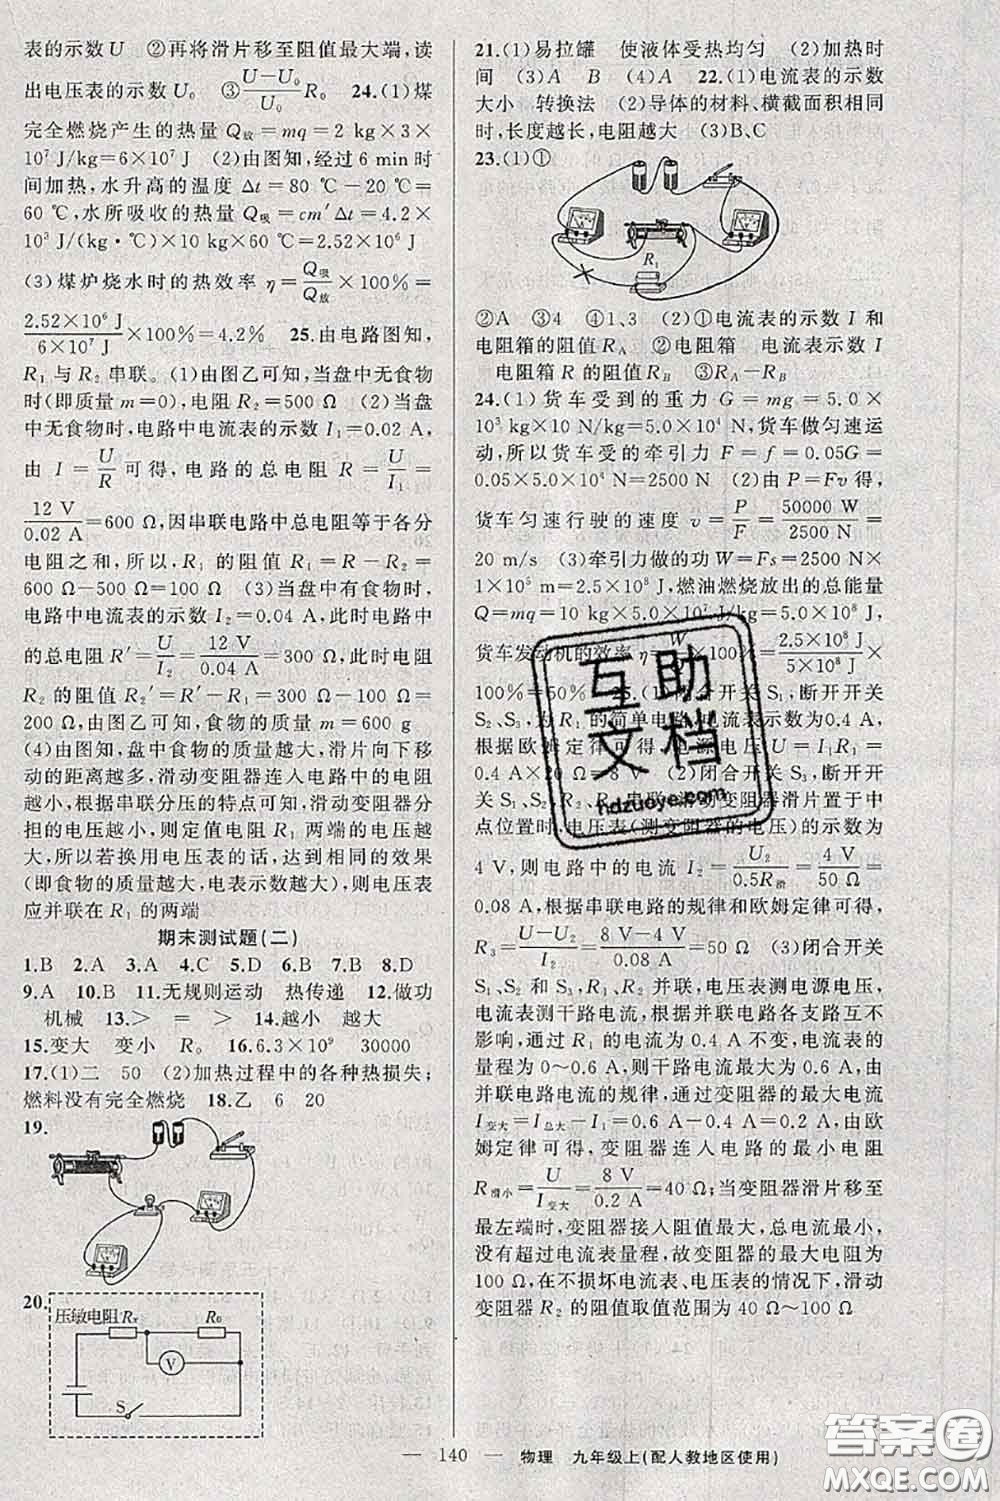 表的示数 U　②再将滑片移至阻值最大端,读
出电压表的示数 U₀　③(U－U₀)/U₀ R₀　24.(1)煤
完全燃烧产生的热量 Q放＝mq＝2 kg×3×
10⁷ J/kg＝6×10⁷ J　(2)由图知,经过 6 min 时
间加热,水升高的温度 Δt＝80 ℃－20 ℃＝
60 ℃,水所吸收的热量 Q吸＝cm′Δt＝4.2×
10³ J/(kg·℃)×10 kg×60 ℃＝2.52×10⁶ J
(3)煤炉烧水时的热效率 η＝Q吸/Q放×100%＝
2.52×10⁶ J/6×10⁷ J×100%＝4.2%　25.由电路图知,
R₁ 与 R₂ 串联。(1)由图乙可知,当盘中无食物
时(即质量 m＝0),电阻 R₂＝500 Ω　(2)当盘
中无食物时,电路中电流表的示数 I₁＝0.02 A,
由 I＝U/R 可得,电路的总电阻 R＝U/I₁＝
12 V/0.02 A＝600 Ω,因串联电路中总电阻等于各分
电阻之和,所以,R₁ 的阻值 R₁＝R－R₂＝
600 Ω－500 Ω＝100 Ω　(3)当盘中有食物时,
电路中电流表的示数 I₂＝0.04 A,此时电路中
的总电阻 R′＝U/I₂＝12 V/0.04 A＝300 Ω,此时电阻
R₂ 的阻值 R₂′＝R′－R₁＝300 Ω－100 Ω＝
200 Ω,由图乙可知,食物的质量 m＝600 g
(4)由图知,盘中食物的质量越大,滑片向下移
动的距离越多,滑动变阻器连入电路中的电阻
越小,根据串联分压的特点可知,滑动变阻器分
担的电压越小,则定值电阻 R₁ 两端的电压越
大,所以若换用电压表的话,达到相同的效果
(即食物的质量越大,电表示数越大),则电压表
应并联在 R₁ 的两端
期末测试题(二)
1.B　2.A　3.A　4.C　5.D　6.B　7.B　8.D
9.A　10.B　11.无规则运动　热传递　12.做功
机械　13.＞　＝　＞　14.越小　越大
15.变大　变小　R₀　16.6.3×10⁹　30000
17.(1)二　50　(2)加热过程中的各种热损失;
燃料没有完全燃烧　18.乙　6　20
19.
20.
压敏电阻Rₓ　R₀
V
S
21.(1)易拉罐　使液体受热均匀　(2)加热时
间　(3)A　B　(4)A　22.(1)电流表的示数
大小　转换法　(2)导体的材料、横截面积相同
时,长度越长,电阻越大　(3)B、C
23.(1)①
R₁
②A　③4　④1、3　(2)①电流表的示数 I 和
电阻箱的阻值 R_A　②电阻箱　电流表示数 I
电阻箱 R 的阻值 R_B　③R_A－R_B
24.(1)货车受到的重力 G＝mg＝5.0×
10³kg×10 N/kg＝5.0×10⁴ N,货车做匀速运
动,所以货车受的牵引力 F＝f＝0.05G＝
0.05×5.0×10⁴ N＝2500 N　(2)由 P＝Fv 得,
货车匀速行驶的速度 v＝P/F＝50000 W/2500 N＝
20 m/s　(3)牵引力做的功 W＝Fs＝2500 N×
1×10⁵ m＝2.5×10⁸ J,燃油燃烧放出的总能量
Q＝mq＝10 kg×5.0×10⁷ J/kg＝5.0×10⁸ J,
货车发动机的效率 η＝W/Q×100%＝2.5×10⁸ J/5×10⁸ J×
100%＝50%　25.(1)闭合开关 S₁,断开开关
S₂、S₃,为 R₁ 的简单电路,电流表示数为0.4 A,
根据欧姆定律可得,电源电压 U＝I₁R₁＝
0.4 A×20 Ω＝8 V　(2)闭合开关 S₃,断开开关
S₁、S₂,R₂、R₃ 串联,滑动变阻器滑片置于中
点位置时,电压表(测变阻器的电压)的示数为
4 V,则电路中的电流 I₂＝U₂/0.5R滑＝4 V/50 Ω＝
0.08 A,根据串联电路的规律和欧姆定律可得,
R₃＝(U－U₂)/I₂＝(8 V－4 V)/0.08 A＝50 Ω　(3)闭合开关
S₁、S₂ 和 S₃,R₁、R₂ 并联,电压表测电源电压,
电流表测干路电流,根据并联电路各支路互不
影响,通过 R₁ 的电流为 0.4 A 不变,电流表的
量程为 0～0.6 A,则干路电流最大为 0.6 A,由
并联电路电流的规律,通过变阻器的最大电流
I变大＝I总大－I₁＝0.6 A－0.4 A＝0.2 A,由欧
姆定律可得,变阻器连入电路的最小电阻
R滑小＝U/I变大＝8 V/0.2 A＝40 Ω;当变阻器滑片移至
最左端时,变阻器接入阻值最大,总电流最小,
没有超过电流表量程,故变阻器的最大电阻为
100 Ω,在不损坏电流表、电压表的情况下,滑动
变阻器 R₂ 的阻值取值范围为 40 Ω～100 Ω
互助
文档
hdzuoye.com
— 140 —　物理　九年级上(配人教地区使用)
答案圈
MXQE.COM